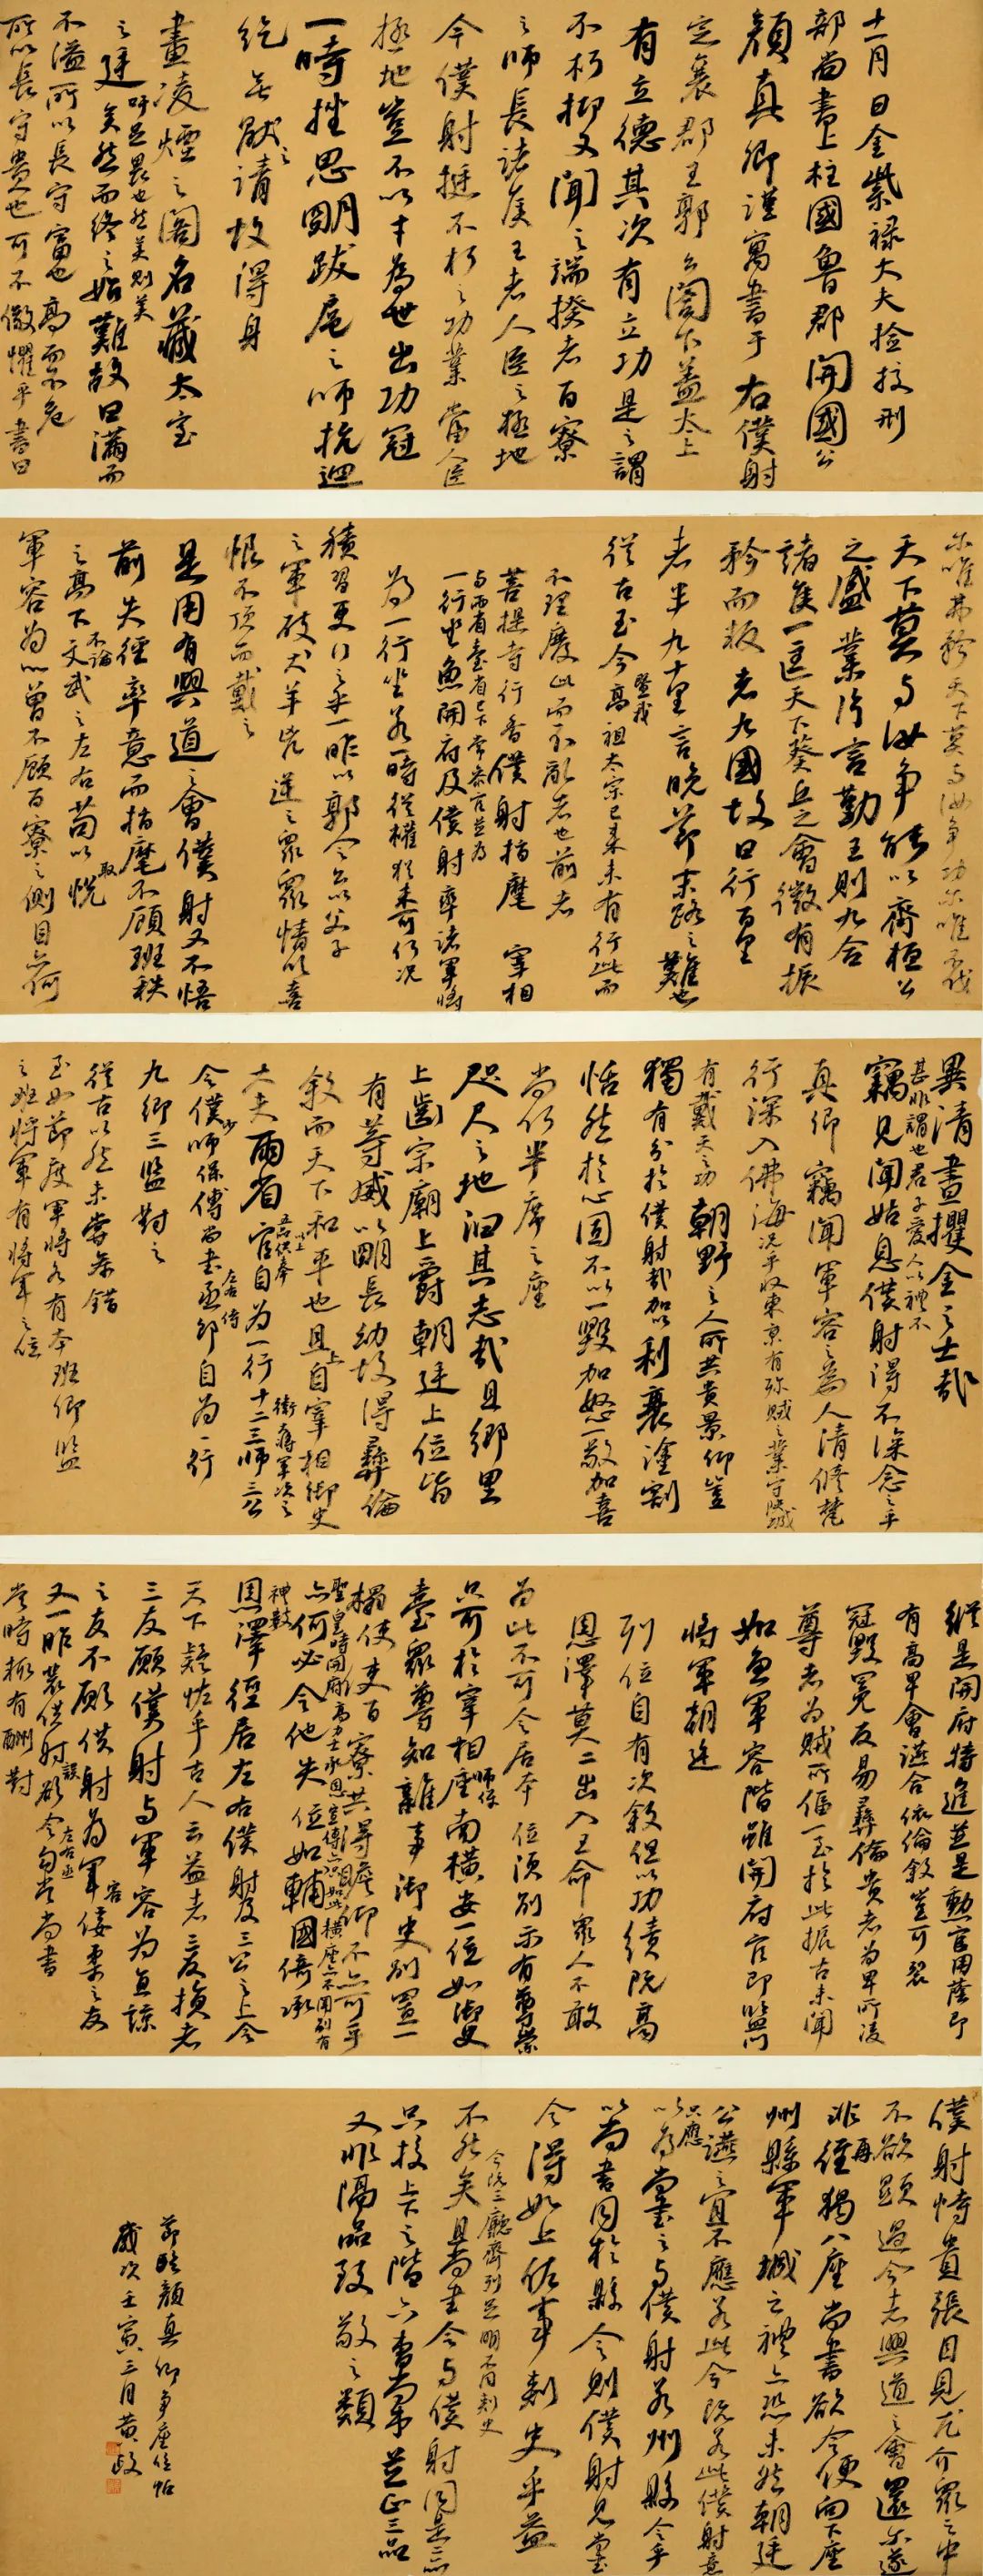 十一月日金紫禄大夫撿挍刑
部尚書上柱國魯郡開國公
顔真卿謹寓書于右僕射
定襄郡王郭公閤下蓋太上
有立德其次有立功是之謂
不朽抑又聞之端揆者百寮
之師長諸矦王者人臣之極地
今僕射挺不朽之功業當人臣
極地豈不以才為世出功冠
一時挫思明跋扈之師抗迴
紇無厭之請故得身
畫凌煙之閣名藏太室
之廷吁足畏也然美則美
矣然而終之始難故曰滿而
不溢所以長守富也高而不危
所以長守貴也可不儆懼乎書曰
尒唯弗矜天下莫与汝争功尒唯不伐
天下莫与汝争能以齊桓公
之盛業片言勤王則九合
諸矦一匡天下葵丘之會微有振
矜而叛者九國故曰行百里
者半九十里言晚節末路之難也
從古至今曁我高祖太宗已来未有行此而
不理廢此而不亂者也前者
菩提寺行香僕射指麾宰相
与兩省臺省已下常叅官並為
一行坐魚開府及僕射率諸軍將
為一行坐若一時從權猶未可何況
積習更行之乎一昨以郭令公以父子
之軍破犬羊兇逆之衆衆情欣喜
恨不頂而戴之
是用有興道之會僕射又不悟
前失徑率意而指麾不顧班秩
之高下不論文武之左右苟以取悦
軍容為心曽不顧百寮之側目亦何
異清晝攫金之士哉
甚非謂也君子愛人以禮不
竊見聞姑息僕射得不深念之乎
真卿竊聞軍容之為人清修梵
行深入佛海況乎収東京有殄賊之業守陜城
有戴天之功朝野之人所共貴景仰豈
獨有分於僕射哉加以利衰塗割
恬然於心固不以一毀加怒一敬加喜
尚何半席之座
咫尺之地汩其志哉且鄉里
上齒宗廟上爵朝廷上位皆
有等威以明長幼故得彝倫
敘而天下和平也且上自宰相御史
大夫兩省五品以上供奉官自為一行十二衛大將軍次之三師三公
令僕少師保傅尚書左右丞侍郎自為一行
九卿三監對之
從古以然未嘗叅錯
至如節度軍將各有本班卿監
之班將軍有將軍之位
縱是開府特進並是勲官用蔭即
有高卑會讌合依倫敘豈可裂
冠毀冕反易彝倫貴者為卑所凌
尊者為賊所偪一至於此振古未聞
如魚軍容階雖開府官即監門
將軍朝廷
列位自有次敘但以功績既高
恩澤莫二出入王命衆人不敢
為此不可令居本位須別示有尊崇
只可於宰相師保座南橫安一位如御史
臺衆尊知雜事御史別置一
榻使百寮共得瞻仰不亦可乎
聖皇時開府高力士承恩宣傳亦只如此橫座亦不聞別有
亦何必令他失位如輔國倚承
神鼓
恩澤徑居左右僕射及三公之上令
天下疑怪乎古人云益者三友損者
三友願僕射与軍容為直諒
之友不願僕射為軍容佞柔之友
又一昨裴僕射誤欲令左右丞勾當尚書
當時輒有酬對
僕射恃貴張目見尤介衆之中
不欲顕過今者興道之會還尒遂
非再徑猲八座尚書欲令便向下座
州縣軍城之禮亦恐未然朝廷
公讌之宜不應若此今既若此僕射意
只應以為當書之与僕射若州縣令乎
以尚書同於縣令則僕射見尚書
令得如上佐事刺史乎益
不然矣今既三廳齊列足明不同刺史
且尚書令与僕射同是二品
只挍上下之階六曹尚書並正三品
又非隔品致敬之類
節臨顔真卿争座位帖
歲次壬寅三月黄政